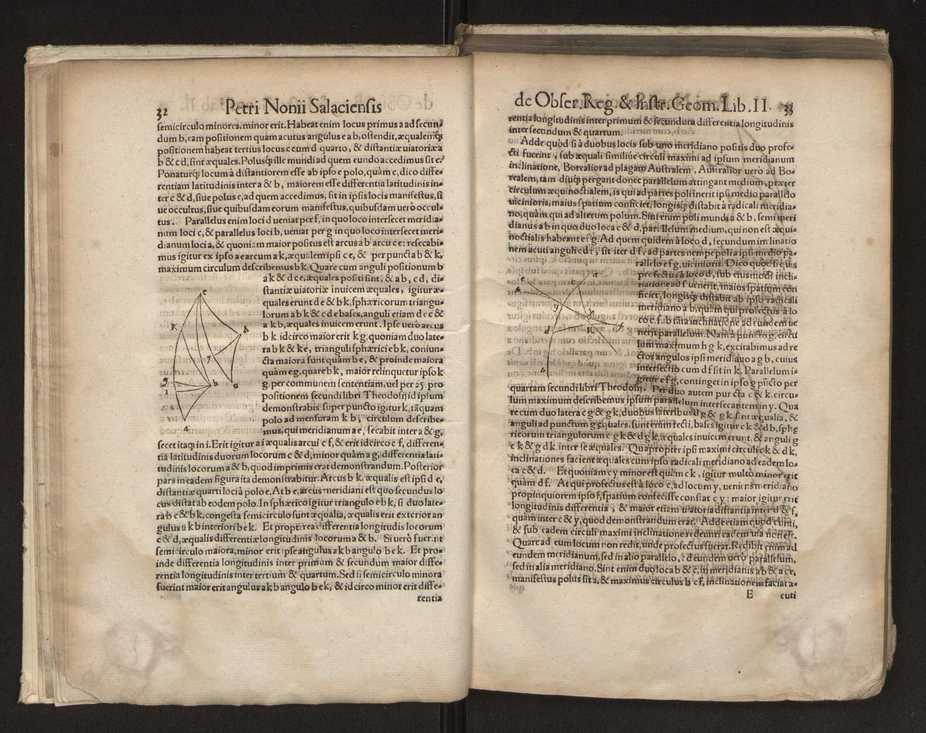 32 Petri Nonii Salaciensis
semicirculo minores, minor erit. Habeat enim locus primus a ad secun-
dum b, eam positionem quam acutus angulus e a b, ostendit, æqualemq́;
positionem habeat tertius locus c cum d quarto, & distantiæ uiatoriæ a
b & c d, sint æquales. Polusq́; ille mundi ad quem eundo accedimus sit e.
Ponaturq́; locum à distantiorem esse ab ipso e polo, quàm c, dico diffe-
rentiam latitudinis inter a & b, maiorem esse differentia latitudinis in-
ter c & d, siue polus e, ad quem accedimus, sit in ipsis locis manifestus, si
ue occultus, siue quibusdam eorum manifestus, quibusdam uerò occul-
tus. Parallelus enim loci d ueniat per f, in quo loco intersecet meridia-
num loci c, & parallelus loci b, ueniat per g in quo loco intersecet meri-
dianum loci a, & quoniam maior positus est arcus a b arcu c e: resecabi-
mus igitur ex ipso a e arcum a k, æqualem ipsi c e, & per puncta b & k,
maximum circulum describemus b k. Quare cum anguli positionum b
a k & d c e, æquales positi sint, & a b, c d, di-
stantiæ uiatoriæ inuicem æquales, igitur æ-
quales erunt d e & b k, sphæricorum triangu-
lorum a b k & c d e bases, anguli etiam d e c &
a k b, æquales inuicem erunt. Ipse uerò arcus
b k idcirco maior erit k g, quoniam duo late-
ra b k & k e, trianguli sphærici e b k, coniun-
cta maiora sunt quàm b e, & proinde maiora
quàm e g, quare b k, maior relinquetur ipso k
g per communem sententiam, uel per 25. pro
positionem secundi libri Theodosij, id ipsum
demonstrabis: super puncto igitur k, tãquam
polo ad mensuram k b, circulum describe-
mus, qui meridianum a e, secabit inter a & g,
secet itaq́; in i. Erit igitur a i æqualis arcui c f, & erit idcirco c f, differen-
tia latitudinis duorum locorum c & d, minor quàm a g, differentia lati-
tudinis locorum a & b, quod imprimis erat demonstrandum. Posterior
pars in eadem figura ita demonstrabitur. Arcus b k, æqualis est ipsi d e,
distantiæ quarti loci à polo e. At b e, arcus meridiani est quo secundus lo
cus distat ab eodem polo. In sphærico igitur triangulo e b k, si duo late-
ra b e & b k, congesta semicirculo sunt æqualia, æqualis erit exterior an
gulus a k b interiori b e k. Et propterea differentia longitudis locorum
c & d, æqualis differentiæ longitudinis locorum a & b. Si uerò fuerint
semicirculo maiora, minor erit ipse angulus a k b angulo b e k. Et pro-
inde differentia longitudinis inter primum & secundum maior diffe-
rentia longitudinis inter tertium & quartum. Sed si semicirculo minora
fuerint maior erit angulus a k b angulo b e k, & id circo minor erit diffe-
rentia
de Obser. Reg. & Instr. Geom. Lib. II. 33
rentia longitudinis inter primum & secundum differentia longitudinis
inter secundum & quartum.
Adde quòd si à duobus locis sub uno meridiano positis duo profe-
cti fuerint, sub æquali similiúe circuli maximi ad ipsum meridianum
inclinatione, Borealior ad plagam Australem, Australior uero ad Bo-
realem, tam diuq́; pergant donec parallelum attingant medium, præter
circulum æquinoctialem, is qui ad partes polí uenerit ipsi medio parallelo
uicinioris, maius spatium conficiet, longiusq́; distabit à radicali meridia-
no, quàm qui ad alterum polum. Sint enim poli mundi a & b, semi meri
dianus a b in quo duo loca c & d, parallelum medium, qui non est æqui-
noctialis habeant e f g. Ad quem quidem à loco d, secundum inclinatio
nem acuti anguli c d f, sit iter d f, ad partes nempe polia ipsi medio pa-
rallelo e f g, uicinioris. Dico quòd is qui
profectus à loco d, sub eiusmodi incli-
natione ad f uenerit, maius spatium con
ficiet, longiusq́; distabit ab ipso radicali
meridiano a b, quàm qui profectus à lo
co c f. b sita inclinatione ad eundem ue
nerit parallelum. Nam à puncto g, circu
lum maximum h g k, excitabimus ad re
ctos angulos ipsi meridiano a g b, cuius
intersectio cum d f sit in k. Parallelum i-
gitur e f g, continget in ipso g pũcto per
quartam secundi libri Theodosij. Per duo autem puncta c & k circu-
lum maximum describemus ipsum parallelum intersecantem in y. Qua
re cum duo latera c g & g k, duobus lateribus d g & g k sint æqualia, &
anguli ad punctum g æquales, sunt enim recti, bases igitur c k & d b, sphę
ricorum triangulorum c g k & d g k, æquales inuicem erunt, & anguli g
c k & g d k inter se æquales. Quapropter ipsi maximi circuli c k & d k,
inclinationes facient æquales cum ipso radicali meridiano ad eadem lo-
ca c & d. Et quoniam c y minor est quàm c k, igitur multò minor erit
quàm d f. At qui profectus est à loco c, ad locum y, uenit nam meridiano
propinquiorem ipso f, spatium confecisse constat c y: maior igitur erit
longitudinis differentia, & maior etiam uiatoria distantia inter d & f,
quàm inter c & y, quod demonstrandum erat. Adde etiam quod cuncti,
& sub eadem circuli maximi inclinatione redeunti eadem uia non est.
Quare ad eum locum non redit, unde profectus fuerat. Redibit enim ad
eundem meridianum, sed in alio parallelo, & ad eundem uerò parallelum,
sed in alia meridiano. Sint enim duo loca b & c, in meridianis a b & a c,
manifestus polus sit a, & maximus circulus b c f, inclinationem faciat a-
E cuti